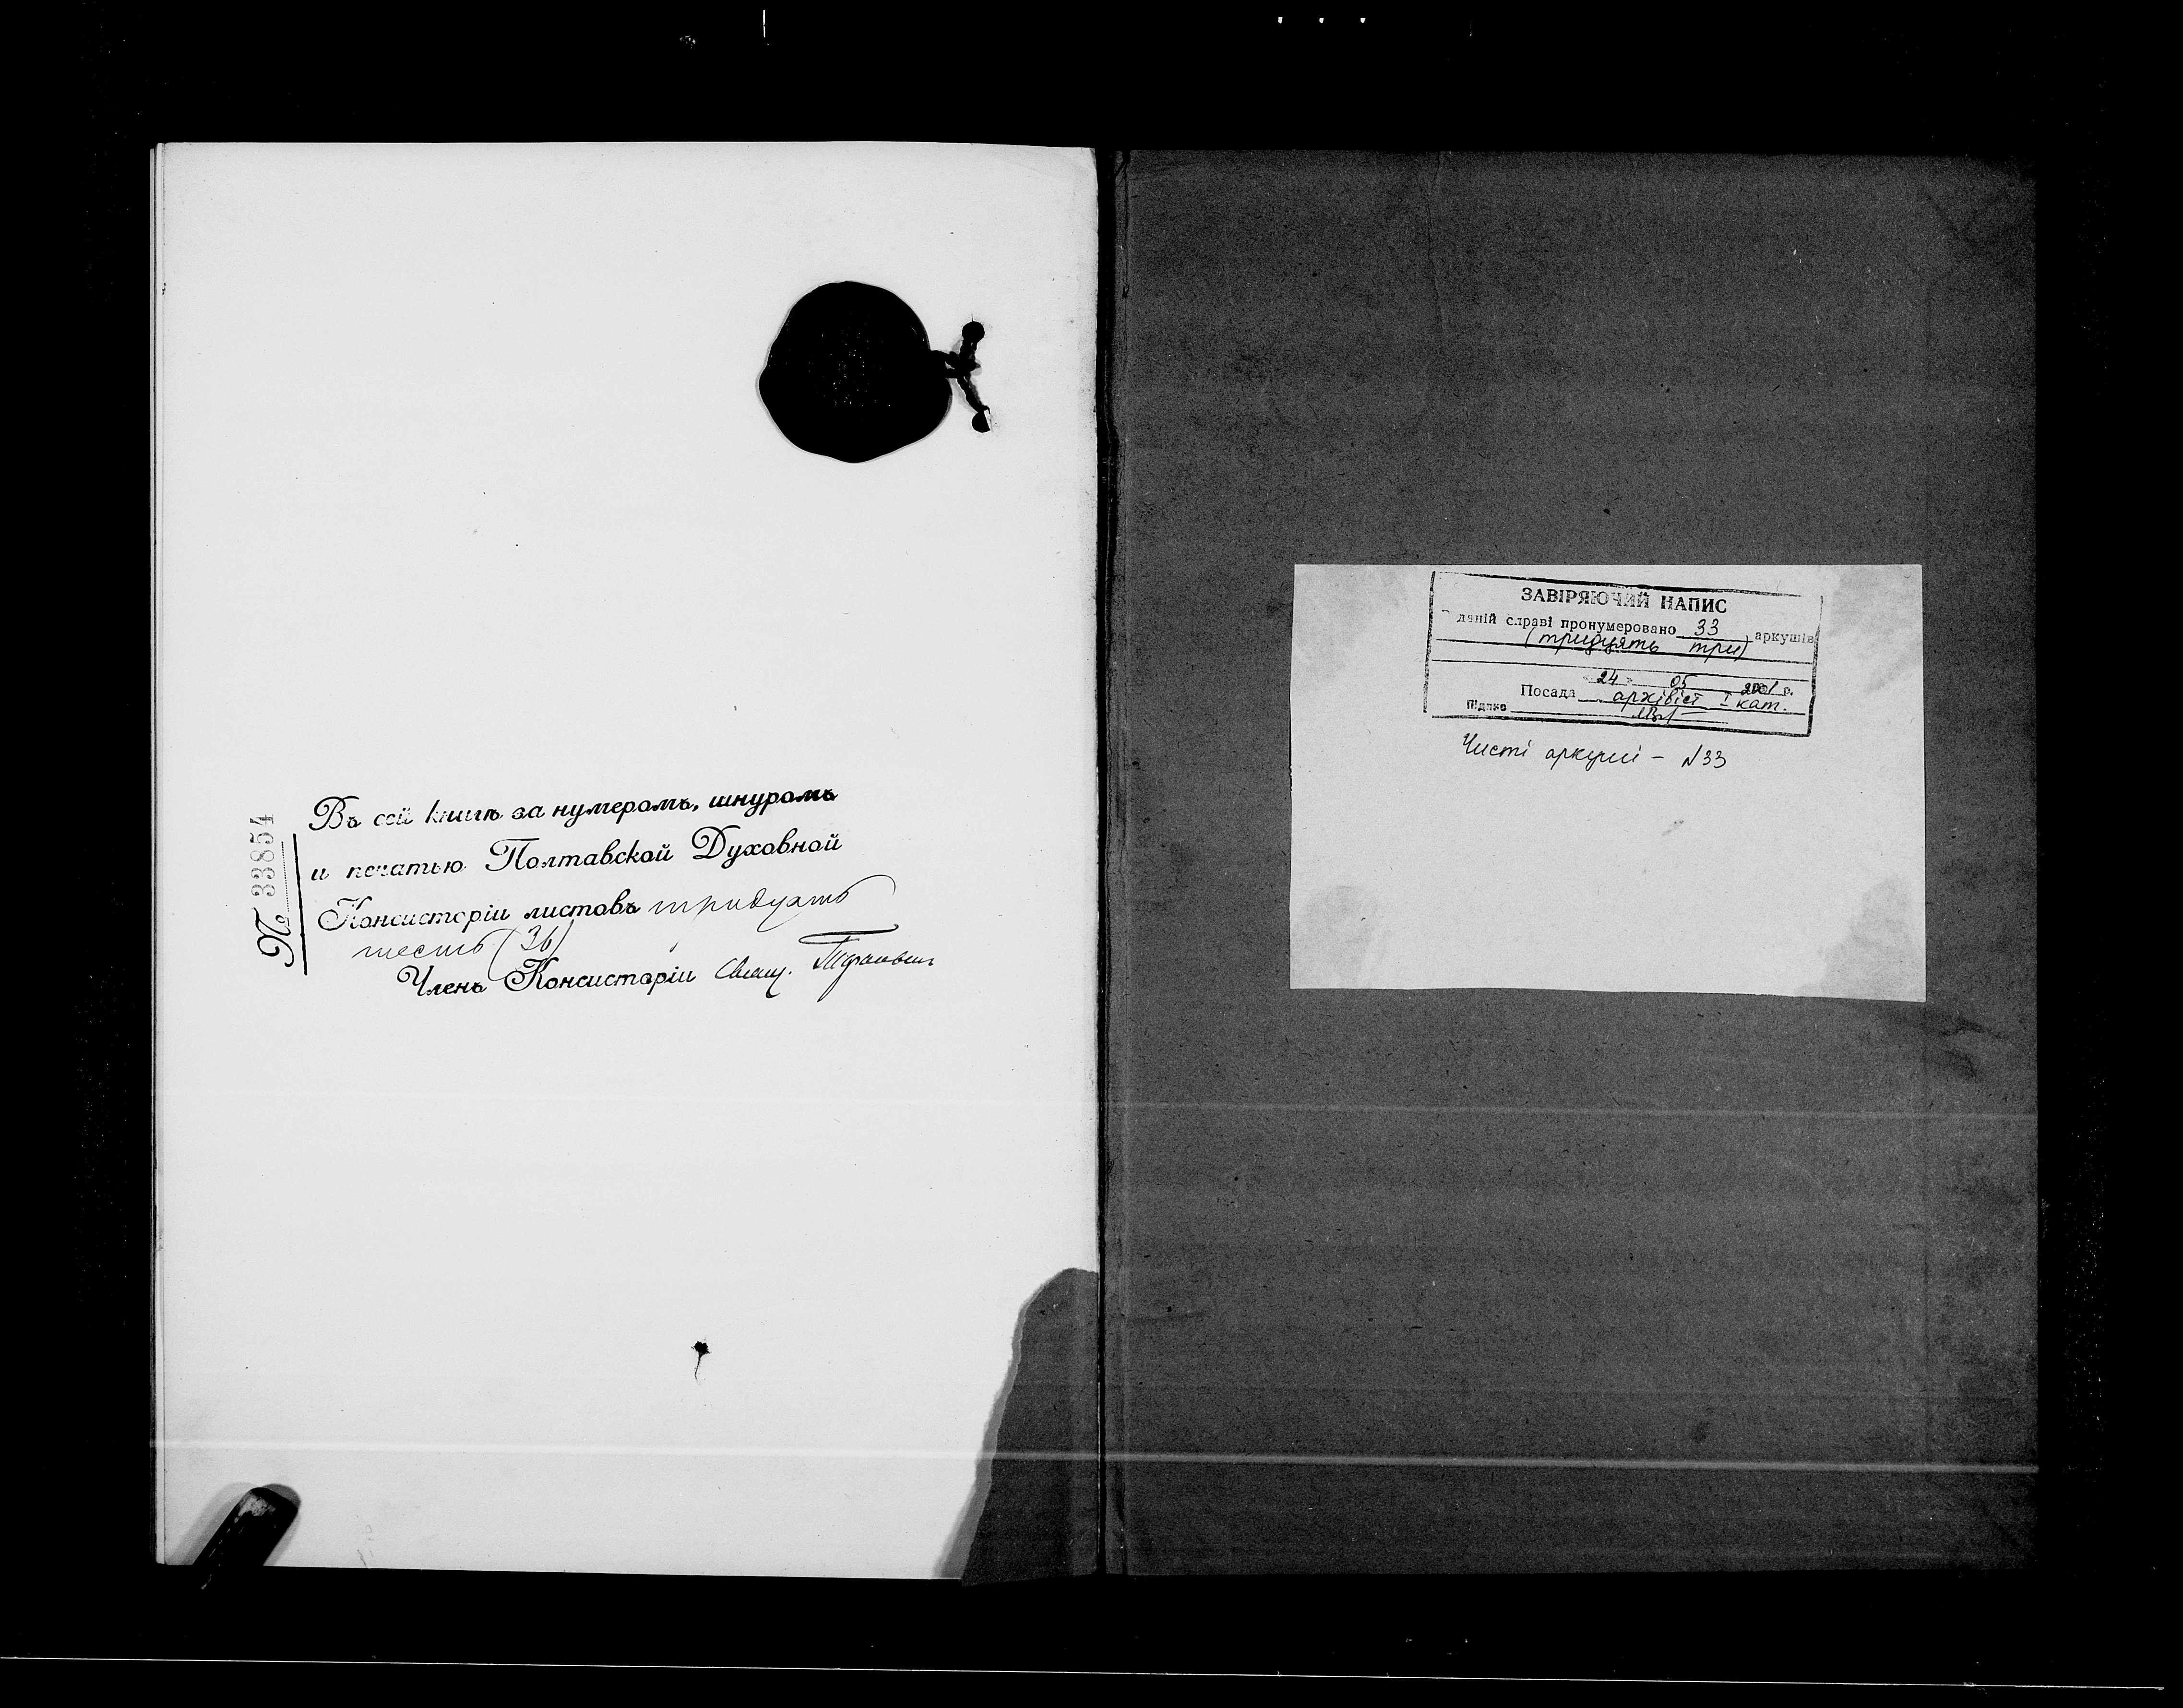 № 33854
Въ сей книгѣ за нумеромъ, шнуромъ
и печатью Полтавской Духовной
Консисторіи листовъ тридцать
шесть (36)
Членъ Консисторіи Свящ.
ЗАВІРЯЮЧИЙ НАПИС
даній справі пронумеровано 33 аркушів
(тридцять три)
24 » 05 2001 р.
Посада архівіст І кат.
Підпис
Чисті аркуші – N33